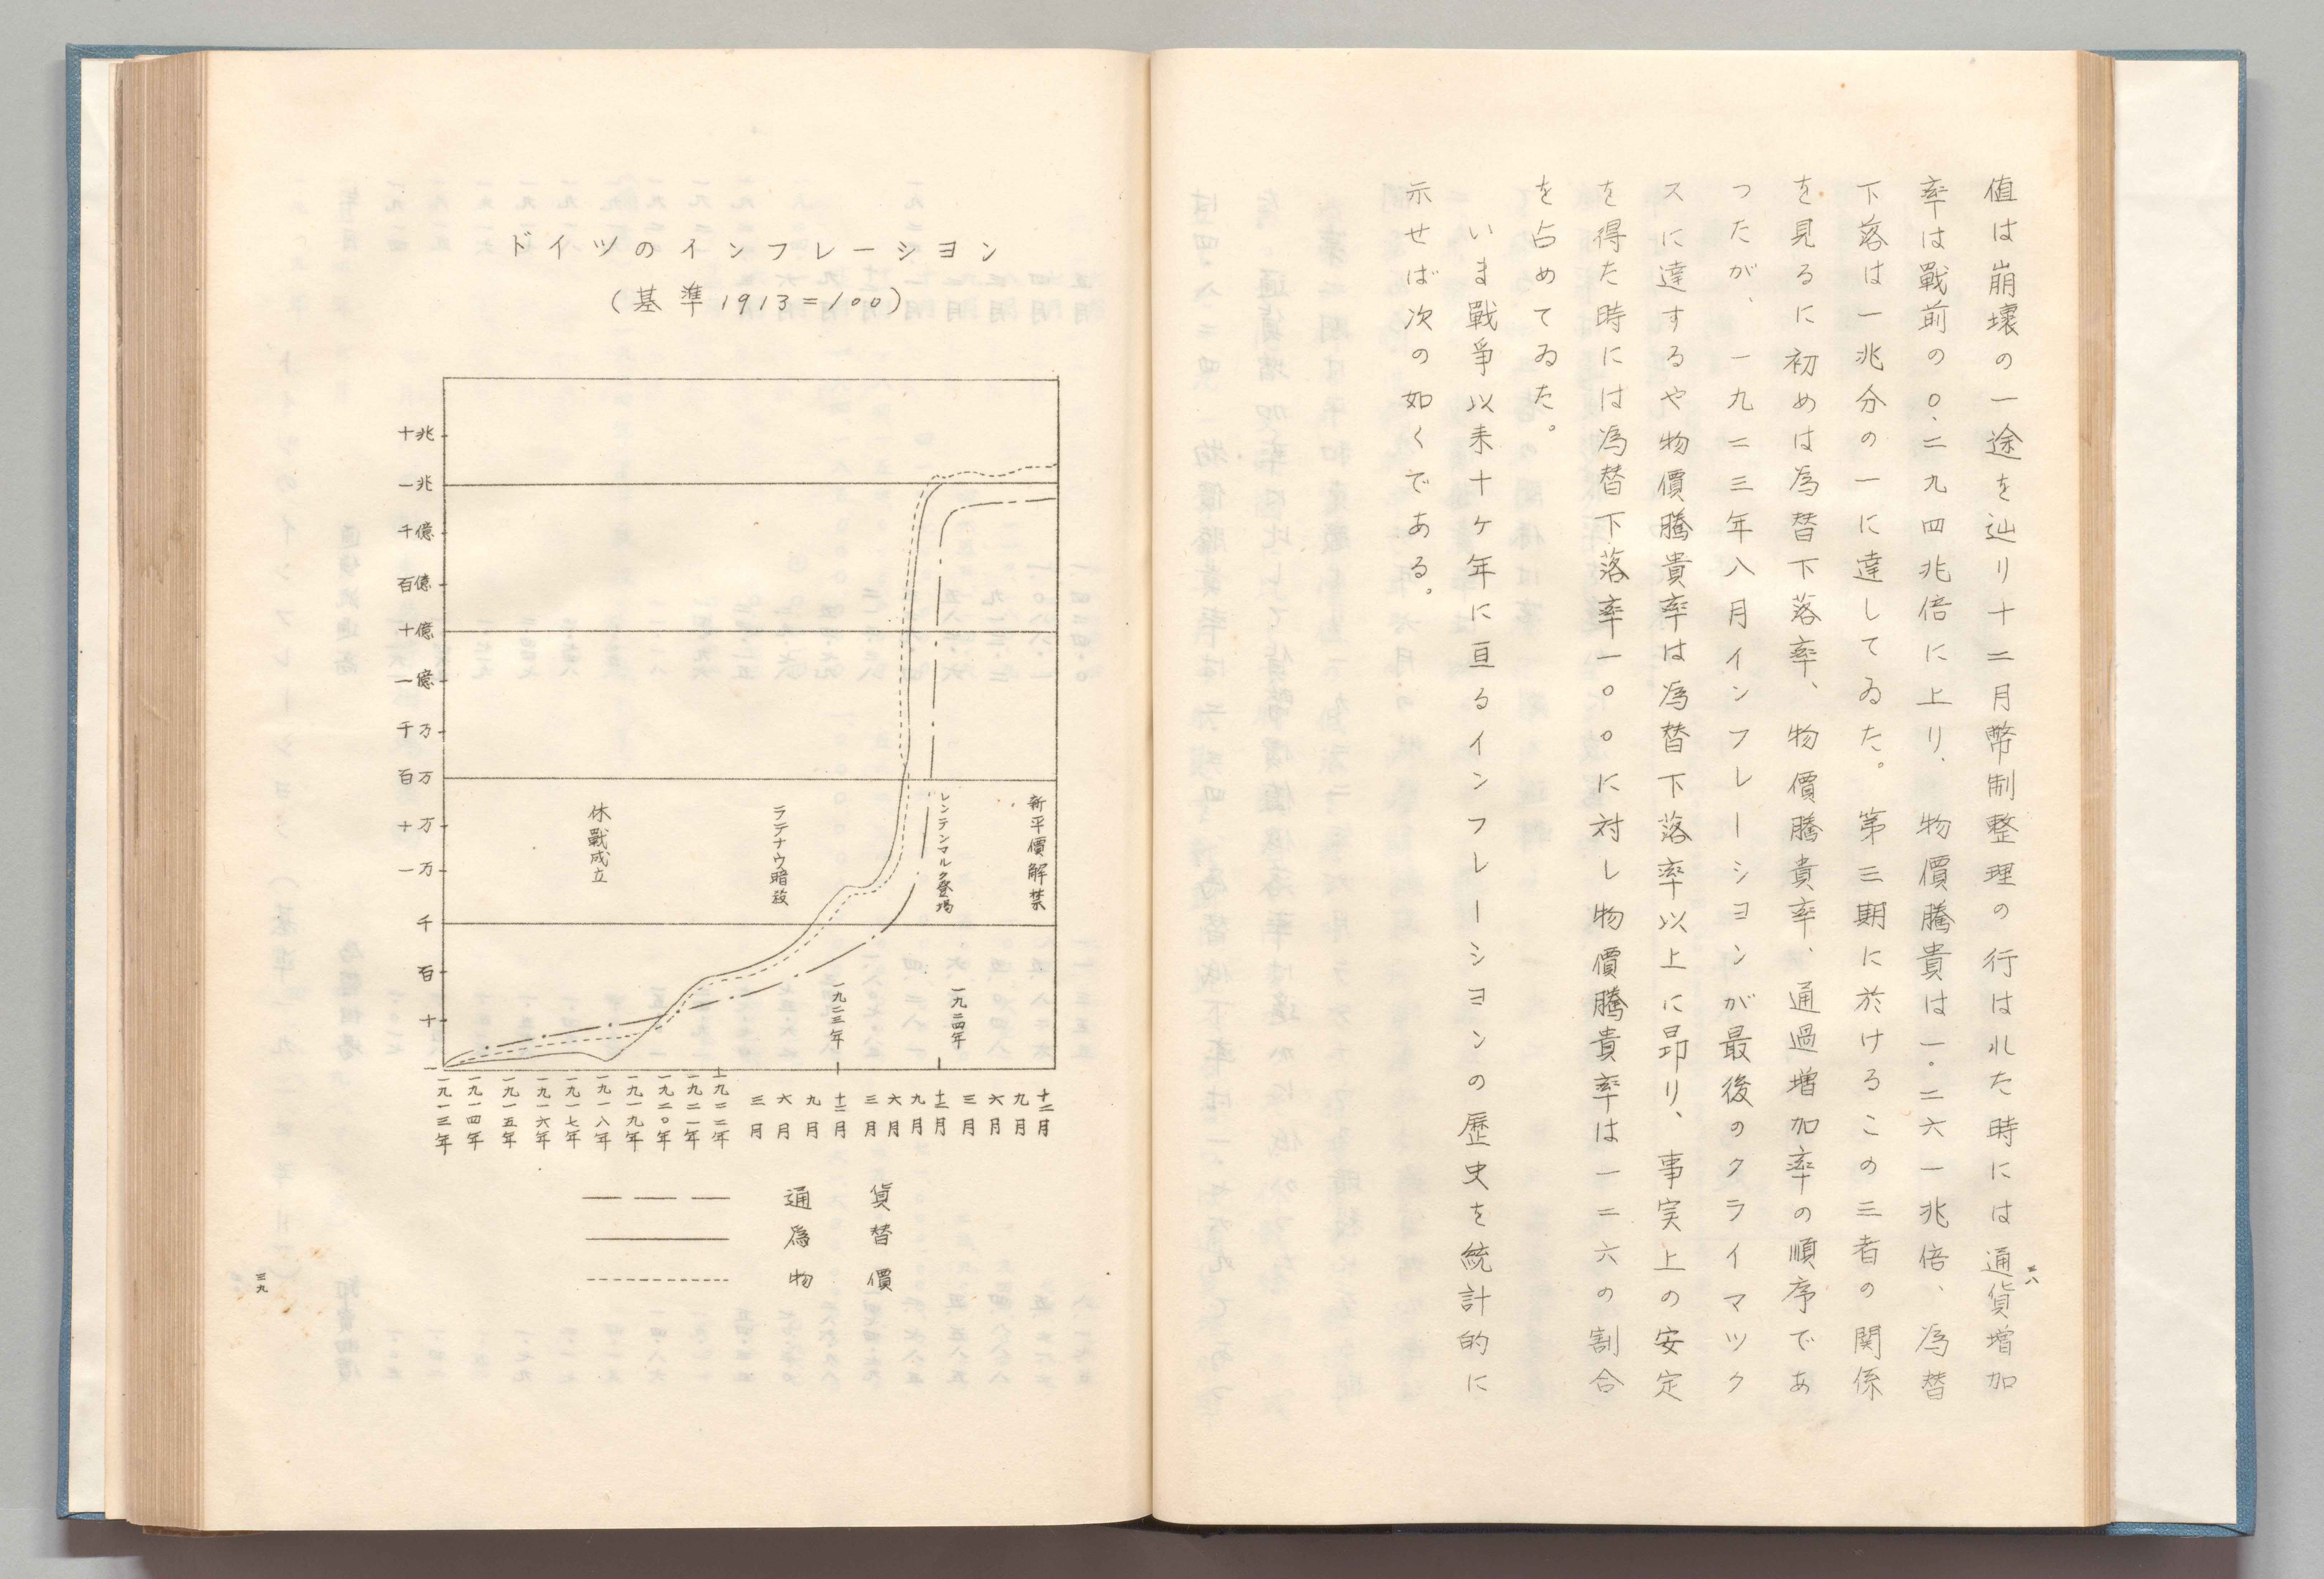 値は崩壊の一途を辿り十二月幣制整理の行はれた時には通貨増加
率は戰前の〇.二九四兆倍に上り、物價騰貴は一.二六一兆倍、為替
下落は一兆分の一に達してゐた。第三期に於けるこの三者の関係
を見るに初めは為替下落率、物價騰貴率、通過増加率の順序であ
つたが、一九二三年八月インフレーシヨンが最後のクライマツク
スに達するや物價騰貴率は為替下落率以上に昂り、事実上の安定
を得た時には為替下落率一〇〇に対し物價騰貴率は一二六の割合
を占めてゐた。
いま戰爭以来十ヶ年に亘るインフレーシヨンの歴史を統計的に
示せば次の如くである。
三八
ドイツのインフレーシヨン
(基準1913=100)
十兆
一兆
千億
百億
十億
一億
千万
百万
十万
一万
千
百
十
一
休戰成立
ラテナウ暗殺
レンテンマルク登場
新平價解禁
一九二三年
一九二四年
一九一三年
一九一四年
一九一五年
一九一六年
一九一七年
一九一八年
一九一九年
一九二〇年
一九二一年
一九二二年
三月
六月
九月
十二月
三月
六月
九月
十二月
三月
六月
九月
十二月
通貨
為替
物價
三九